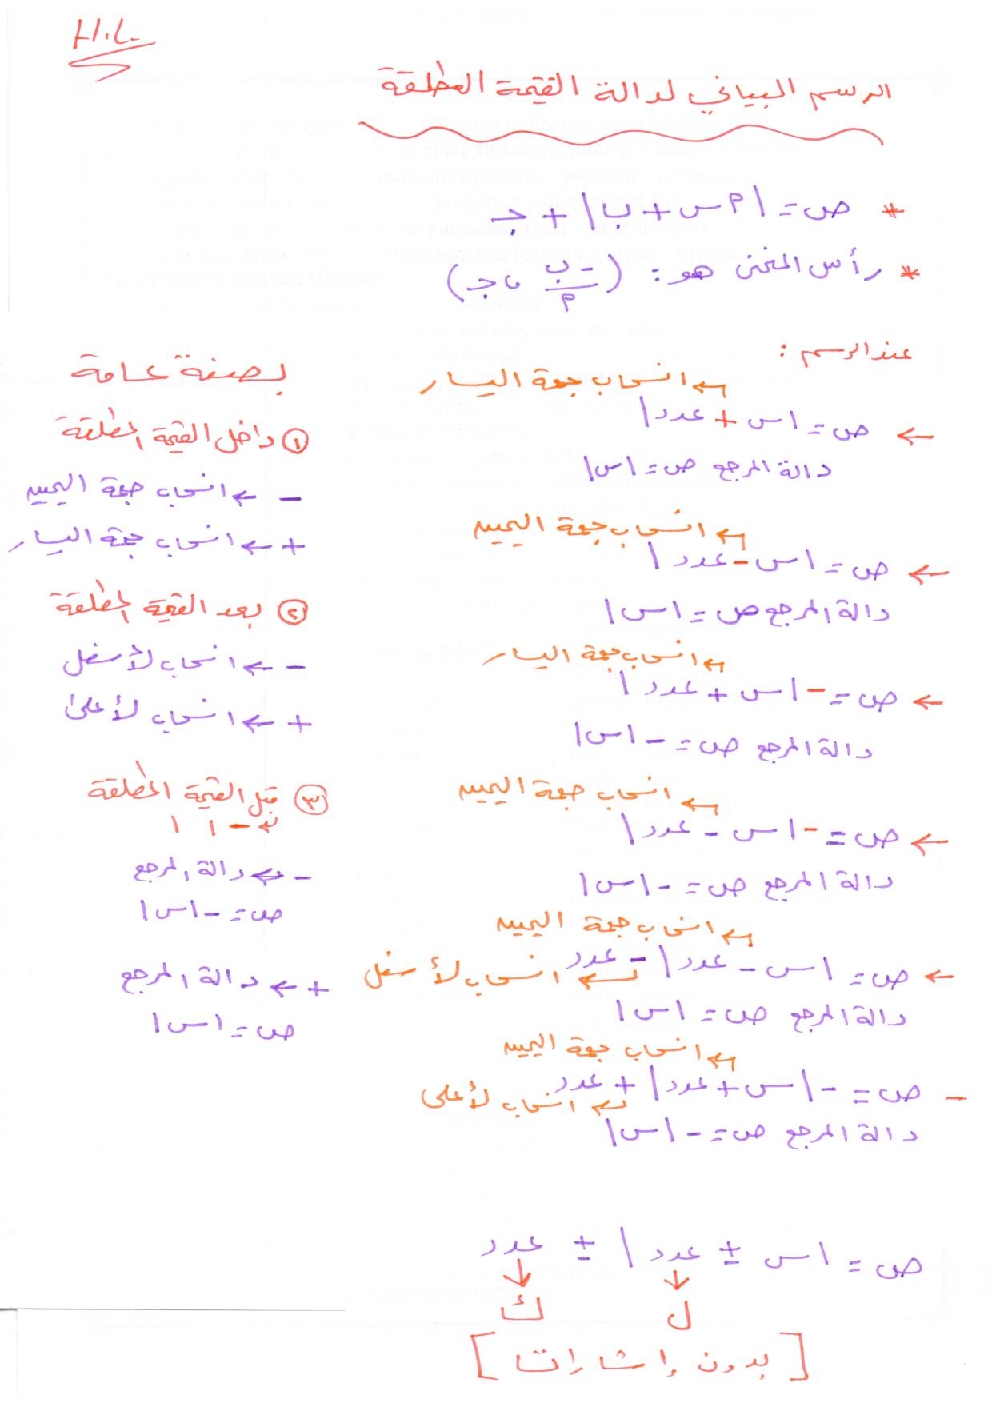 H.L.
الرسم البياني لدالة القيمة المطلقة
* ص = |٢س + ب| + جـ
* رأس المنحنى هو: (-ب/٢ ، جـ)
عند الرسم :
← انسحاب جهة اليسار
← ص = |س + عدد|
دالة المرجع ص = |س|
← انسحاب جهة اليمين
← ص = |س - عدد|
دالة المرجع ص = |س|
← انسحاب جهة اليسار
← ص = -|س + عدد|
دالة المرجع ص = -|س|
← انسحاب جهة اليمين
← ص = -|س - عدد|
دالة المرجع ص = -|س|
← انسحاب جهة اليمين
← ص = |س - عدد| - عدد
← انسحاب لأسفل
دالة المرجع ص = |س|
← انسحاب جهة اليمين
- ص = -|س + عدد| + عدد
← انسحاب لأعلى
دالة المرجع ص = -|س|
ص = |س ± عدد| ± عدد
ل ك
[بدون إشارات]
بصفة عامة
① داخل القيمة المطلقة
- ← انسحاب جهة اليمين
+ ← انسحاب جهة اليسار
② بعد القيمة المطلقة
- ← انسحاب لأسفل
+ ← انسحاب لأعلى
③ قبل القيمة المطلقة
- | |
- ← دالة المرجع
ص = -|س|
+ ← دالة المرجع
ص = |س|